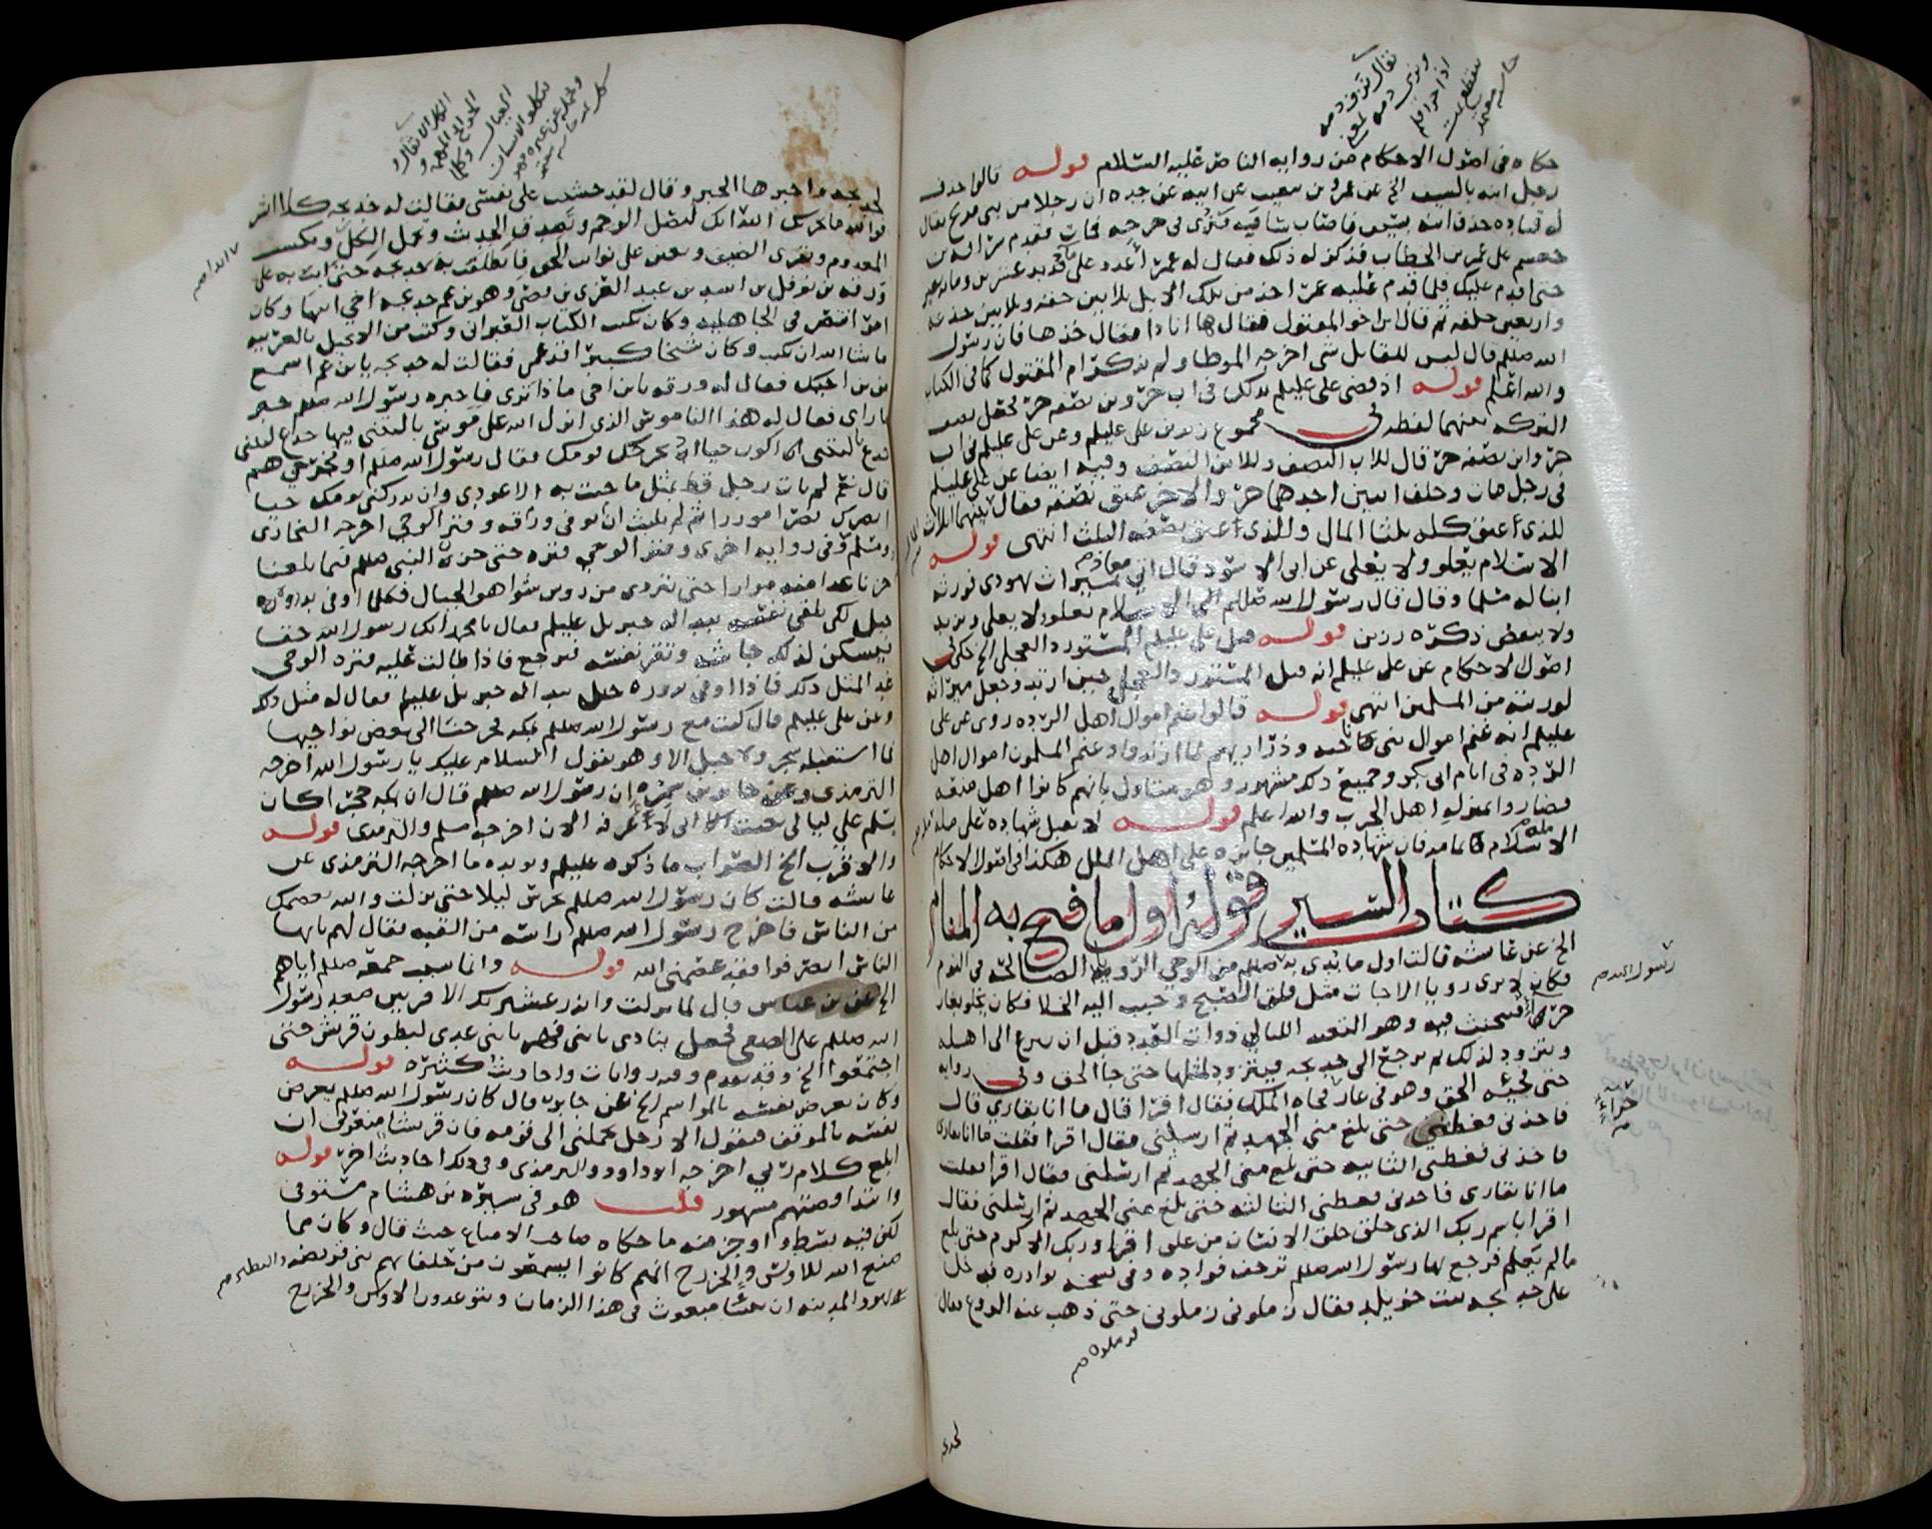 حكاه في اصول الاحكام من روايه الناصر عليه السلام قوله قالوا حذف
رجل ابنه بالسيف الخ عن عمرو بن شعيب عن ابيه عن جده ان رجلا من بني مدلج يقال
له قتاده حذف ابنه بسيف فاصاب ساقيه فنزى في جرحه فمات فقدم سراقه بن
جعشم على عمر بن الخطاب فذكر له ذلك فقال له عمر أعدد على ما قديد عشرين ومائه بعير
حتى اقدم عليك فلما قدم عليه عمر اخذ من تلك الابل ثلاثين حقه وثلاثين جذعه
واربعين خلفه ثم قال اين اخو المقتول فقال ها انا ذا فقال خذها فان رسول
الله صللم قال ليس للقاتل شي اخرجه الموطا ولم يذكر ام المقتول كما في الكتاب
والله اعلم قوله اذ قضى علي عليلم بذلك في اب حر وبن نصفه حر لجعل نصف
التركه بينهما لفظه في مجموع زيد بن علي عليلم وعن علي عليلم في اب
حر وابن نصفه حر قال للاب النصف وللابن النصف وفيه ايضا عن علي عليلم
في رجل مات وخلف ابنين احدهما حر والاخر عتق نصفه فقال بينهما اثلاث
للذي أعتق كله ثلثا المال وللذي أعتق نصفه الثلث انتهى قوله
الاسلام يعلو ولا يعلى عن ابي الاسود قال اتي معاذ بميراث يهودي فورثه
ابنا له مسلما وقال قال رسول الله صللم الاسلام يعلو ولا يعلى ويزيد
ولا ينقص ذكره رزين قوله قتل علي عليلم المستورد العجلي الخ حكى في
اصول الاحكام عن علي عليلم انه قتل المستورد العجلي حين ارتد وجعل ميراثه
لورثته من المسلمين انتهى قوله قالوا غنم اموال اهل الرده روي عن علي
عليلم انه غنم اموال بني ناجيه وذراريهم لما ارتدوا وغنم المسلمون اموال اهل
الرده في ايام ابي بكر وجميع ذلك مشهور وهو متناول بانهم كانوا اهل منعه
فصاروا بمنزله اهل الحرب والله اعلم قوله لا تقبل شهاده مله على مله
الا مله الاسلام فان شهاده المسلمين جائزه على اهل الملل هكذا في اصول الاحكام
كتاب السير قوله اول ما فتح به المقال
الخ عن عائشه قالت اول ما بدي به صللم من الوحي الرويا الصالحه في النوم
فكان لا يرى رويا الا جات مثل فلق الصبح وحبب اليه الخلا فكان يخلو بغار
حرا فيتحنث فيه وهو التعبد الليالي ذوات العدد قبل ان ينزع الى اهله
ويتزود لذلك ثم يرجع الى خديجه فيتزود لمثلها حتى جا الحق وفي روايه
حتى فجئه الحق وهو في غار فجاه الملك فقال اقرا قال ما انا بقاري قال
فاخذني فغطني حتى بلغ مني الجهد ثم ارسلني فقال اقرا فقلت ما انا بقاري
فاخذني فغطني الثانيه حتى بلغ مني الجهد ثم ارسلني فقال اقرا فقلت
ما انا بقاري فاخذني فغطني الثالثه حتى بلغ مني الجهد ثم ارسلني فقال
اقرا باسم ربك الذي خلق خلق الانسان من علق اقرا وربك الاكرم حتى بلغ
ما لم يعلم فرجع بها رسول الله صللم ترجف فواده وفي نسخه بوادره فدخل
على خديجه بنت خويلد فقال زملوني زملوني حتى ذهب عنه الروع فقال
رسول الله
حراء
فزملوه
لخد
لخديجه واخبرها الخبر وقال لقد خشيت على نفسي فقالت له خديجه كلا ابشر
فوالله ما يخزيك الله انك لتصل الرحم وتصدق الحديث وتحمل الكل وتكسب
المعدوم وتقري الضيف وتعين على نوايب الحق فانطلقت به خديجه حتى اتت به على
ورقه بن نوفل بن اسد بن عبد العزى بن قصي وهو بن عم خديجه اخي ابيها وكان
امرا تنصر في الجاهليه وكان يكتب الكتاب العبراني وكتب من الانجيل بالعربيه
ما شا الله ان يكتب وكان شيخا كبيرا قد عمي فقالت له خديجه يابن عم اسمع
من بن اخيك فقال له ورقه يابن اخي ماذا ترى فاخبره رسول الله صللم خبر
ما راى فقال له هذا الناموس الذي انزل الله على موسى ياليتني فيها جذع ليتني
جذع ياليتني اكون حيا اذ يخرجك قومك فقال رسول الله صللم او مخرجي هم
قال نعم لم يات رجل قط بمثل ما جئت به الا عودي وان يدركني يومك حيا
انصرك نصرا موزرا ثم لم يلبث ان توفي ورقه وفتر الوحي اخرجه البخاري
ومسلم وفي روايه اخرى وفتر الوحي فتره حتى حزن النبي صللم فيما بلغنا
حزنا غدا منه مرارا حتى يتردى من روس شواهق الجبال فكلما اوفى بذروه
جبل لكي يلقي نفسه تبدا له جبريل عليلم فقال يا محمد انك رسول الله حقا
فيسكن لذلك جاشه وتقر نفسه فيرجع فاذا طالت عليه فتره الوحي
غدا لمثل ذلك فاذا اوفى بذروه جبل تبدا له جبريل عليلم فقال له مثل ذلك
وعن علي عليلم قال كنت مع رسول الله صللم بمكه فخرجنا الى بعض نواحيها
فما استقبله شجر ولا جبل الا وهو يقول السلام عليك يا رسول الله اخرجه
الترمذي وعن جابر بن سمره ان رسول الله صللم قال ان بمكه حجرا كان
يسلم علي ليالي بعثت اني لاعرفه الان اخرجه مسلم والترمذي قوله
والاقرب الخ الصواب ما ذكره عليلم ويويده ما اخرجه الترمذي عن
عائشه قالت كان رسول الله صللم يحرس ليلا حتى نزلت والله يعصمك
من الناس فاخرج رسول الله صللم راسه من القبه فقال لهم يا ايها
الناس انصرفوا فقد عصمني الله قوله وانما سبب جمعه صللم اياهم
الخ عن بن عباس قال لما نزلت وانذر عشيرتك الاقربين صعد رسول
الله صللم على الصفى فجعل ينادي يا بني فهر يا بني عدي لبطون قريش حتى
اجتمعوا الخ وقد تقدم وفيه روايات واحاديث كثيره قوله
وكان يعرض نفسه بالمواسم الخ عن جابر قال كان رسول الله صللم يعرض
نفسه بالموقف فيقول الا رجل يحملني الى قومه فان قريشا منعوني ان
ابلغ كلام ربي اخرجه ابو داود والترمذي وفي ذلك احاديث اخر قوله
وابتدا قصتهم مشهور قلت هو في سيره بن هشام مستوفى
لكن فيه بسط واوجز منه ما حكاه صاحب الامتاع حيث قال وكان مما
صنع الله للاوس والخزرج انهم كانوا يسمعون من حلفائهم بني قريظه والنضير
يهود المدينه ان نبيا مبعوث في هذا الزمان ويتوعدون الاوس والخزرج